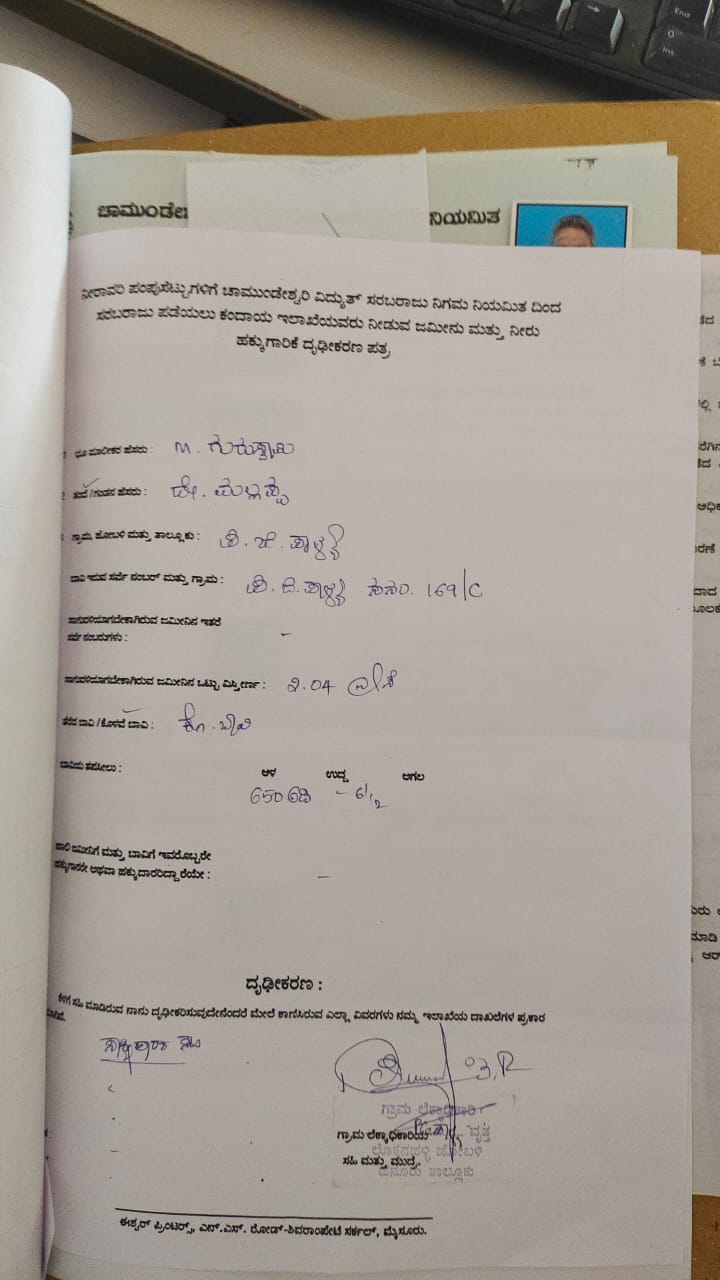 End
0
Ins
ಚಾಮುಂಡೇಶ
ನಿಯಮಿತ
ನೀರಾವರಿ ಪಂಪುಸೆಟ್ಟುಗಳಿಗೆ ಚಾಮುಂಡೇಶ್ವರಿ ವಿದ್ಯುತ್ ಸರಬರಾಜು ನಿಗಮ ನಿಯಮಿತ ದಿಂದ
ಸರಬರಾಜು ಪಡೆಯಲು ಕಂದಾಯ ಇಲಾಖೆಯವರು ನೀಡುವ ಜಮೀನು ಮತ್ತು ನೀರು
ಹಕ್ಕುಗಾರಿಕೆ ದೃಢೀಕರಣ ಪತ್ರ
1 ಭೂ ಮಾಲೀಕರ ಹೆಸರು : M. ಗುರುಸ್ವಾಮಿ
2 ತಂದೆ /ಗಂಡನ ಹೆಸರು : ಲೇ. ಮಲ್ಲಪ್ಪ
ಗ್ರಾಮ, ಹೋಬಳಿ ಮತ್ತು ತಾಲ್ಲೂಕು : ಪಿ. ಜಿ. ಪಾಳ್ಯ
ಬಾವಿ ಇರುವ ಸರ್ವೆ ನಂಬರ್ ಮತ್ತು ಗ್ರಾಮ : ಪಿ. ಜಿ. ಪಾಳ್ಯ ಸ.ನಂ. 169/C
ಸಾಗುವಳಿಯಾಗಬೇಕಾಗಿರುವ ಜಮೀನಿನ ಇತರೆ
ಸರ್ವೆ ನಂಬರುಗಳು : –
ಸಾಗುವಳಿಯಾಗಬೇಕಾಗಿರುವ ಜಮೀನಿನ ಒಟ್ಟು ವಿಸ್ತೀರ್ಣ : 2.04
ತೆರೆದ ಬಾವಿ / ಕೊಳವೆ ಬಾವಿ : ಕೊ. ಬಾವಿ
ಬಾವಿಯ ತಪಶೀಲು :
ಆಳ ಉದ್ದ ಅಗಲ
650 ಅಡಿ – 6 1/2
ಹಾಲಿ ಜಮೀನಿಗೆ ಮತ್ತು ಬಾವಿಗೆ ಇವರೊಬ್ಬರೇ
ಹಕ್ಕುಗಾರರೇ ಅಥವಾ ಹಕ್ಕುದಾರರಿದ್ದಾರೆಯೇ : –
ದೃಢೀಕರಣ :
ಕೆಳಗೆ ಸಹಿ ಮಾಡಿರುವ ನಾನು ದೃಢೀಕರಿಸುವುದೇನೆಂದರೆ ಮೇಲೆ ಕಾಣಿಸಿರುವ ಎಲ್ಲಾ ವಿವರಗಳು ನಮ್ಮ ಇಲಾಖೆಯ ದಾಖಲೆಗಳ ಪ್ರಕಾರ
ಗ್ರಾಮ ಲೆಕ್ಕಾಧಿಕಾರಿ
ವೃತ್ತ
ಗ್ರಾಮ ಲೆಕ್ಕಾಧಿಕಾರಿಯ
ಲೊಕ್ಕನಹಳ್ಳಿ ಹೋಬಳಿ
ಸಹಿ ಮತ್ತು ಮುದ್ರೆ
ಹನೂರು ತಾಲ್ಲೂಕು
ಈಶ್ವರ್ ಪ್ರಿಂಟರ್ಸ್, ಎನ್.ಎಸ್. ರೋಡ್-ಶಿವರಾಂಪೇಟೆ ಸರ್ಕಲ್, ಮೈಸೂರು.